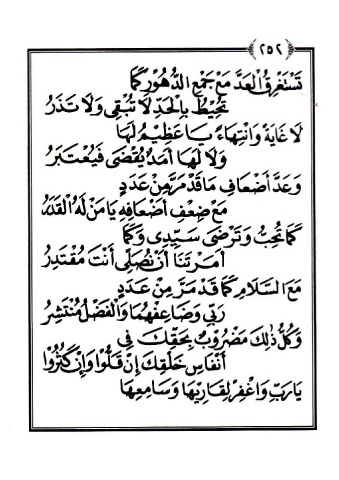 ٢٥٢
تَسْتَغْرِقُ الْعَدَّ مَعْ جَمْعِ الدُّهُوْرِ كَمَا
تُحِيْطُ بِالْحَدِّ لَا تُبْقِي وَلَا تَذَرُ
لَا غَايَةً وَانْتِهَاءً يَا عَظِيْمُ لَهَا
وَلَا لَهَا أَمَدٌ يُقْضَى فَيُعْتَبَرُ
وَعَدَّ أَضْعَافِ مَا قَدْ مَرَّ مِنْ عَدَدٍ
مَعْ ضِعْفِ أَضْعَافِهِ يَا مَنْ لَهُ الْقَدَرُ
كَمَا تُحِبُّ وَتَرْضَى سَيِّدِي وَكَمَا
أَمَرْتَنَا أَنْ نُصَلِّيْ أَنْتَ مُقْتَدِرُ
مَعَ السَّلَامِ كَمَا قَدْ مَرَّ مِنْ عَدَدٍ
رَبِّي وَضَاعِفْهُمَا وَالْفَضْلُ مُنْتَشِرُ
وَكُلُّ ذٰلِكَ مَضْرُوْبٌ بِحَقِّكَ فِي
أَنْفَاسِ خَلْقِكَ إِنْ قَلُّوْا وَإِنْ كَثُرُوْا
يَا رَبِّ وَاغْفِرْ لِقَارِيْهَا وَسَامِعِهَا